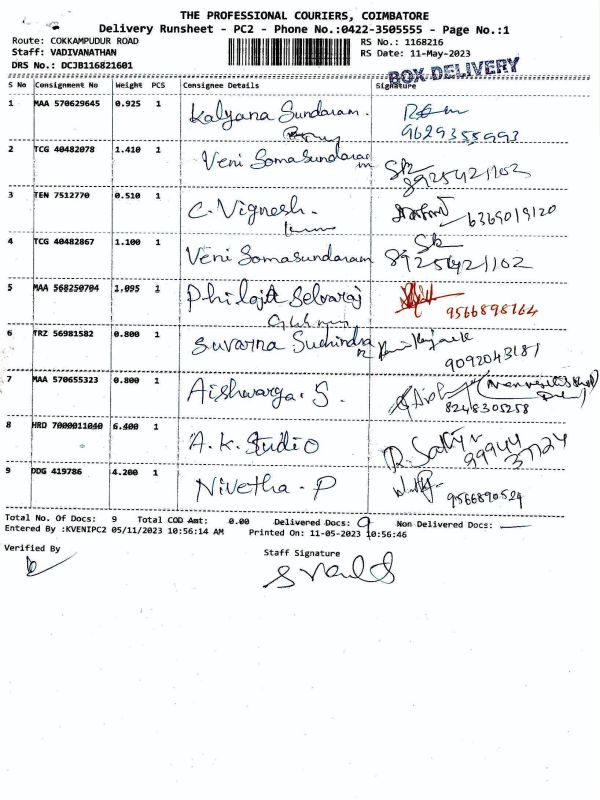 THE PROFESSIONAL COURIERS, COIMBATORE
Delivery Runsheet - PC2 - Phone No.:0422-3505555 - Page No.:1
Route: COKKAMPUDUR ROAD
RS No.: 1168216
Staff: VADIVANATHAN
RS Date: 11-May-2023
DRS No.: DCJB116821601
BOX DELIVERY
S No Consignment No Weight PCS Consignee Details Signature
1 MAA 570629645 0.925 1 Kalyana Sundaram.
9629355993
2 TCG 40482078 1.410 1 Veni Somasundaram
8925421102
3 TEN 7512770 0.510 1 C. Vignesh.
6369019120
4 TCG 40482867 1.100 1 Veni Somasundaram
8925421102
5 MAA 568250704 1.095 1 Philojit Selvaraj
9566898764
6 TRZ 56981582 0.800 1 Suvarna Suchindran
9092043181
7 MAA 570655323 0.800 1 Aishwarga. S.
8248305258
8 HRD 7000011040 6.400 1 A.K. Studio
99944
37724
9 DDG 419786 4.200 1 Nivetha - P
9566890524
Total No. Of Docs: 9 Total COD Amt: 0.00 Delivered Docs: 9 Non Delivered Docs: —
Entered By :KVENIPC2 05/11/2023 10:56:14 AM Printed On: 11-05-2023 10:56:46
Verified By
Staff Signature